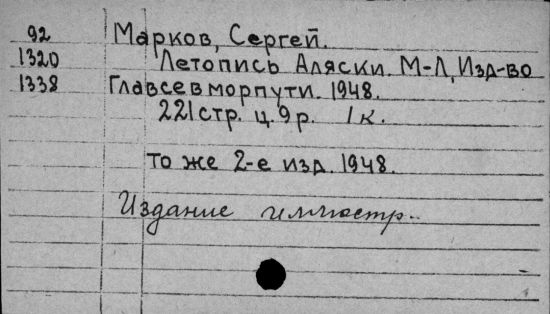 92 Марков, Сергей.
1320 Летопись Аляски. М-Л, Изд-во
1338 Главсевморпути. 1948.
221 стр. ц. 9 р. 1 к.
то же 2-е изд. 1948.
Издание иллюстр..